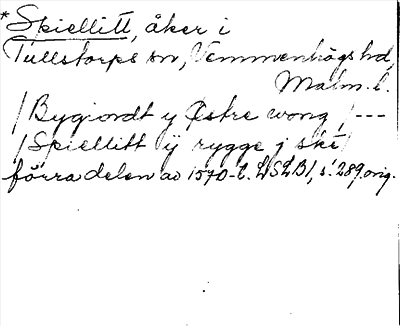 *Spiellitt, åker i
Tullstorps sn, Vemmenhögs hd,
Malm. l.
/Bygiordt y Østre wong/---
/Spiellitt ÿ rygge j ske/
förra delen av 1570-t. LSLB1, s. 289 orig.